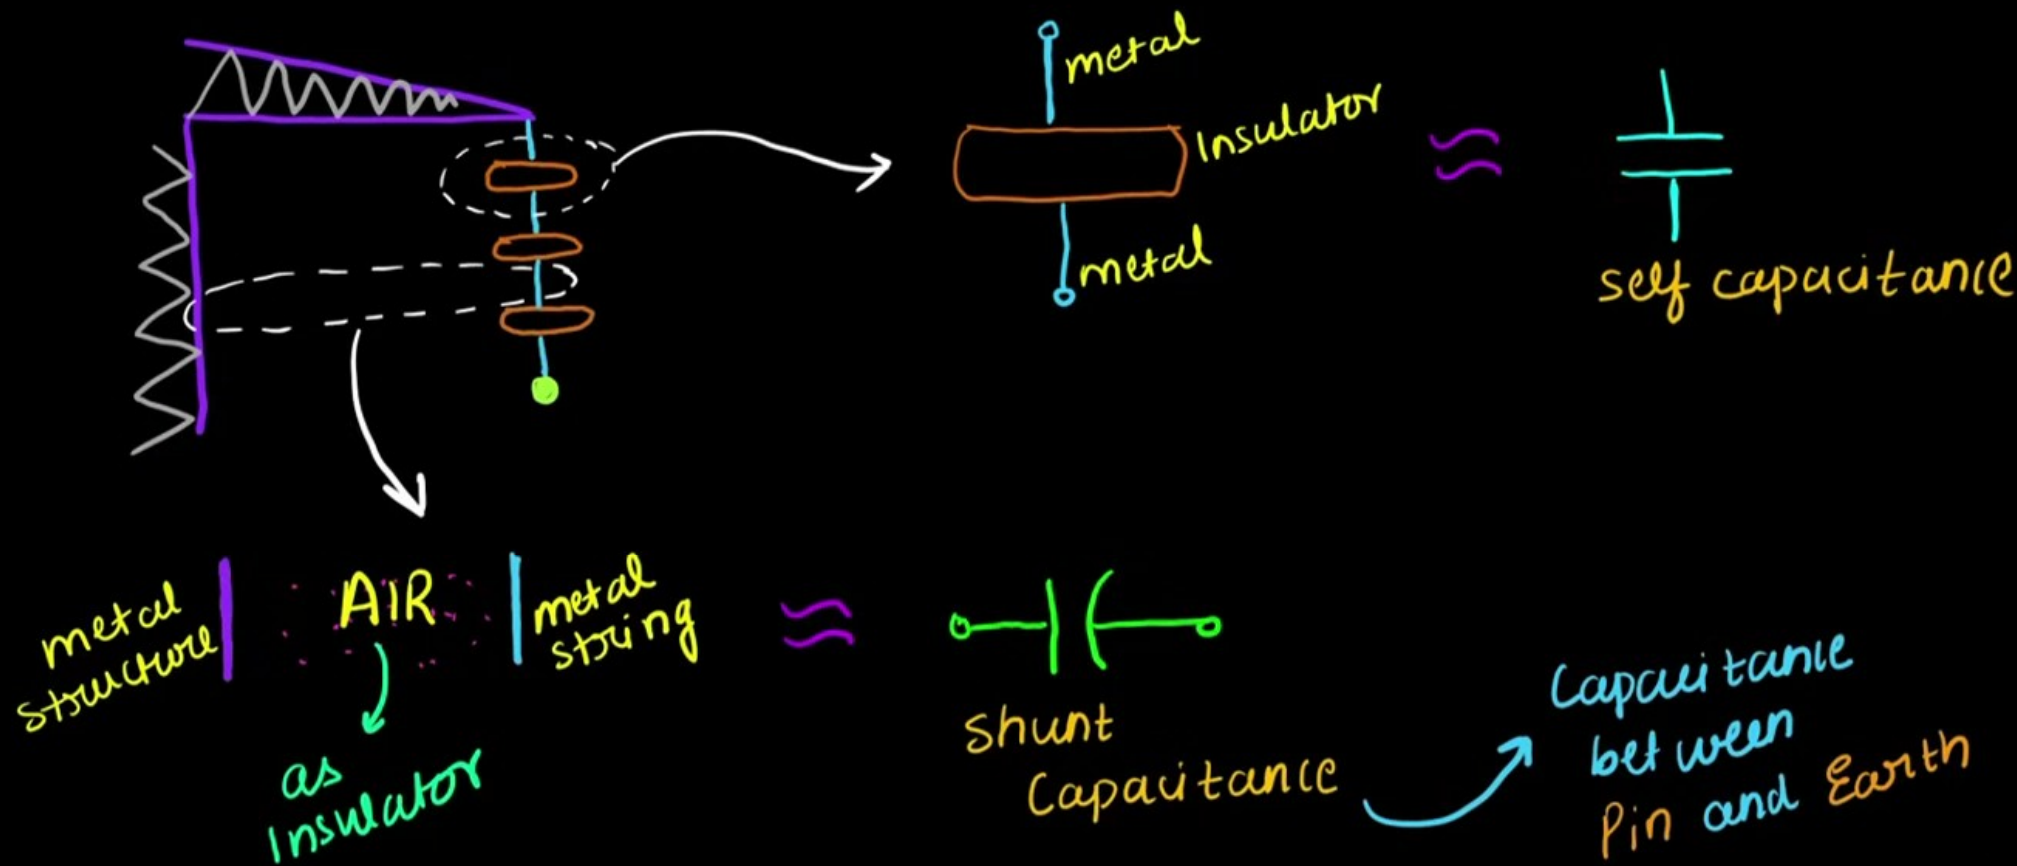 metal
Insulator
metal
self capacitance
metal
structure
AIR
metal
string
as
Insulator
Shunt
Capacitance
Capacitance
between
Pin and Earth